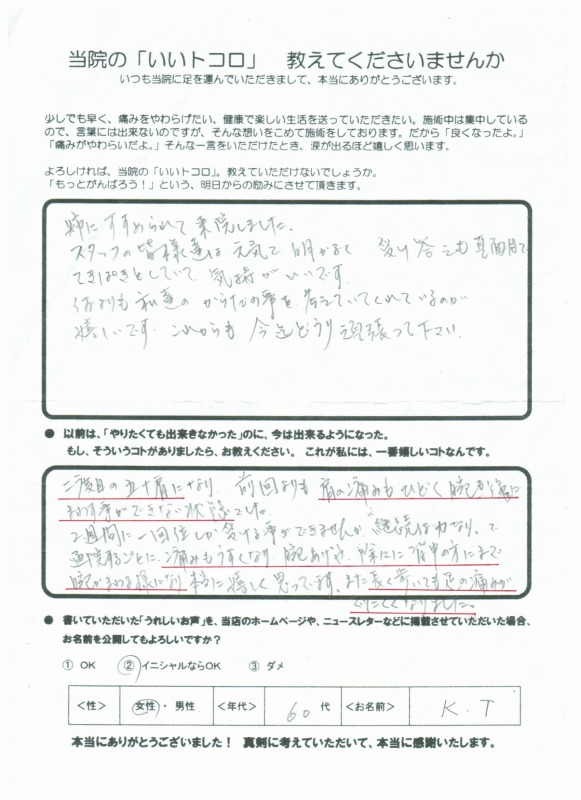 当院の「いいトコロ」 教えてくださいませんか
いつも当院に足を運んでいただきまして、本当にありがとうございます。
少しでも早く、痛みをやわらげたい、健康で楽しい生活を送っていただきたい。施術中は集中している
ので、言葉には出来ないのですが、そんな想いをこめて施術をしております。だから「良くなったよ。」
「痛みがやわらいだよ。」そんな一言をいただけたとき、涙が出るほど嬉しく思います。
よろしければ、当院の「いいトコロ」。教えていただけないでしょうか。
「もっとがんばろう！」という、明日からの励みにさせて頂きます。
姉にすすめられて来院しました。
スタッフの皆様達は元気で明かるく 受け答えも真面目で
てきぱきとしていて、気持がいいです。
何よりも私達のからだの事を考えていてくれているのが
嬉しいです。これからも今迄どうり頑張って下さい。
● 以前は、「やりたくても出来きなかった」のに、今は出来るようになった。
もし、そういうコトがありましたら、お教えください。 これが私には、一番嬉しいコトなんです。
二度目の五十肩になり、前回よりも肩の痛みもひどく腕も後に
まわす事ができない状態でした。
2週間に一回位しか受ける事ができませんが、継続は力なり。で
通院するごとに、痛みもうすくなり、腕あげや、除々に背中の方にまで
腕がまわる様になり本当に嬉しく思っています。また長く歩いても足の痛みが
でにくくなりました。
● 書いていただいた「うれしいお声」を、当店のホームページや、ニュースレターなどに掲載させていただいた場合、
お名前を公開してもよろしいですか？
① OK ② イニシャルならOK ③ ダメ
＜性＞ 女性・男性 ＜年代＞ 60代 ＜お名前＞ K.T
本当にありがとうございました！ 真剣に考えていただいて、本当に感謝いたします。